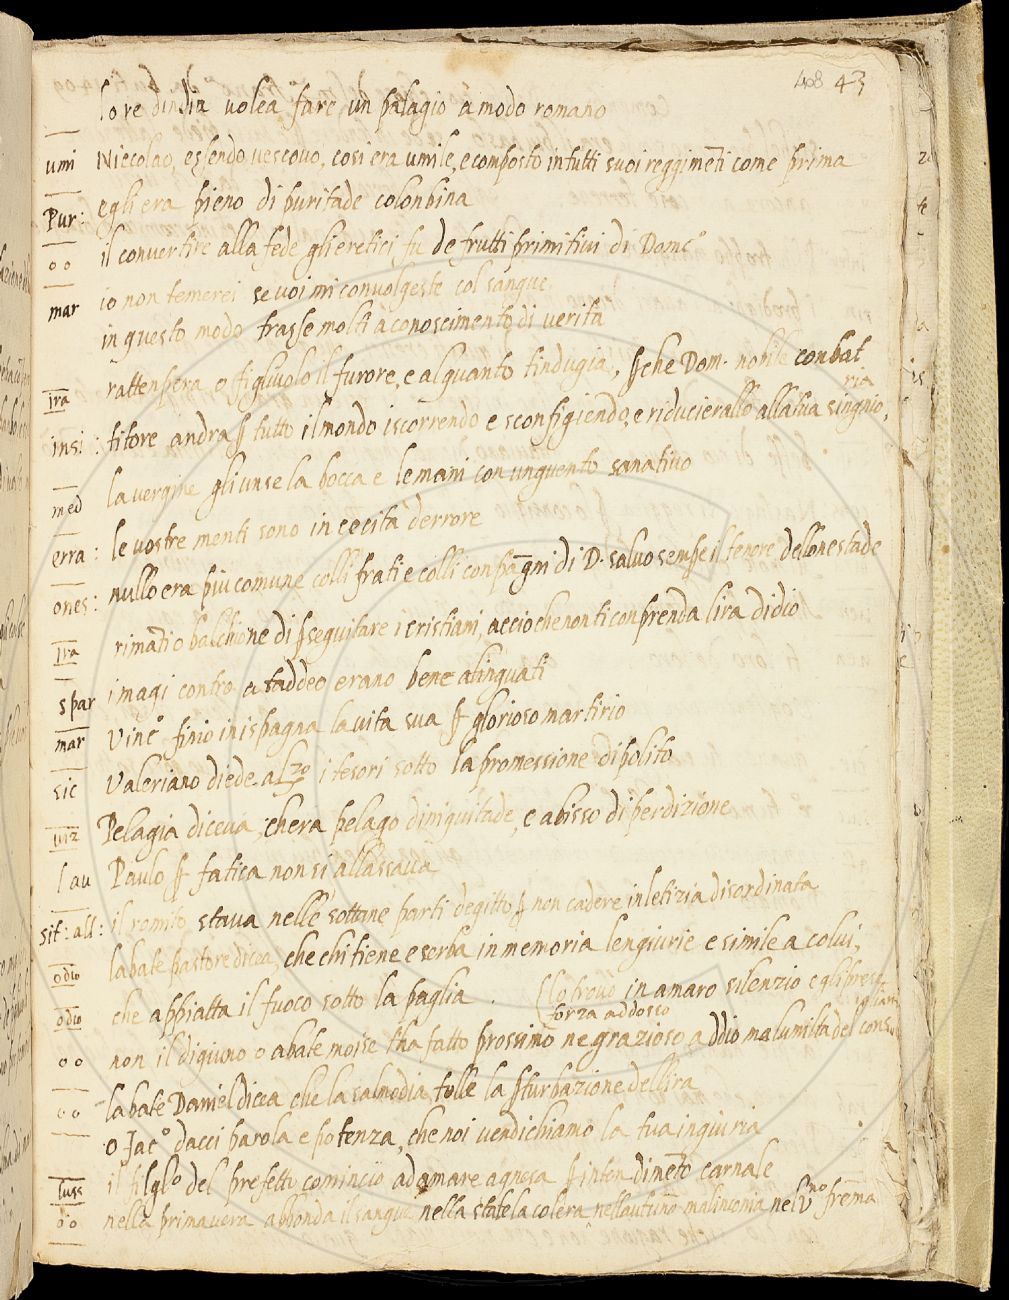 408 43
lo re dindia volea fare un palagio a modo romano
umi Niccolao, essendo vescovo, cosi era umile, e composto in tutti suoi reggimēti come prima
Pur: egli era pieno di puritade colonbina
o o il convertire alla fede gli eretici fu de frutti primitivi di Domc°
mar io non temerei se voi mi convolgeste col sangue
in questo modo trasse molti a conoscimento di verità
ira rattenpera o figiuolo il furore, e alquanto tindugia, che Dom. nobile conbat
insi: titore andra ꝑ tutto il mondo iscorrendo e sconfigiendo, e riducierallo alla tua singnio,
ria
med la vergine gli unse la bocca e le mani con unguento sanativo
erra: le vostre menti sono in cecita derrore
ones: nullo era piu comune colli frati e colli conpāgni di D. salvo senpre il tenore dellonestade
Ira rimāti o balchione di ꝑseguitare i cristiani, accioche non ti conprenda lira didio
spar i magi contro a taddeo erano bene alinguati
mar Vinc° finio in ispagna la vita sua ꝑ glorioso martirio
sic Valeriano diede a Lzo i tesori sotto la promessione dipolito
Pelagia diceva, chera pelago diniquitade, e abisso di perdizione
lau Paulo ꝑ fatica non si allassava
sit: all: il romito stava nelle sottane parti degitto ꝑ non cadere in letizia disordinata
odio labate pastore dicea, che chi tiene e serba in memoria lengiurie e simile a colui,
odio che appiatta il fuoco sotto la paglia. (lo trovo in amaro silenzio e gli
forza addosso
o o non il digiuno o abate moise tha fatto prossimo ne grazioso a ddio ma lumilta del
o o labate Daniel dicea che la salmodia tolle la ꝑturbazione dellira
O Jac° dacci parola e potenza, che noi vendichiamo la tua ingiuria
luss il figl° del prefetto comincio ad amare agnesa ꝑ intendimēto carnale
o o nella primavera abbonda il sangue nella state la colera nellautuno malinconia nel vno frema